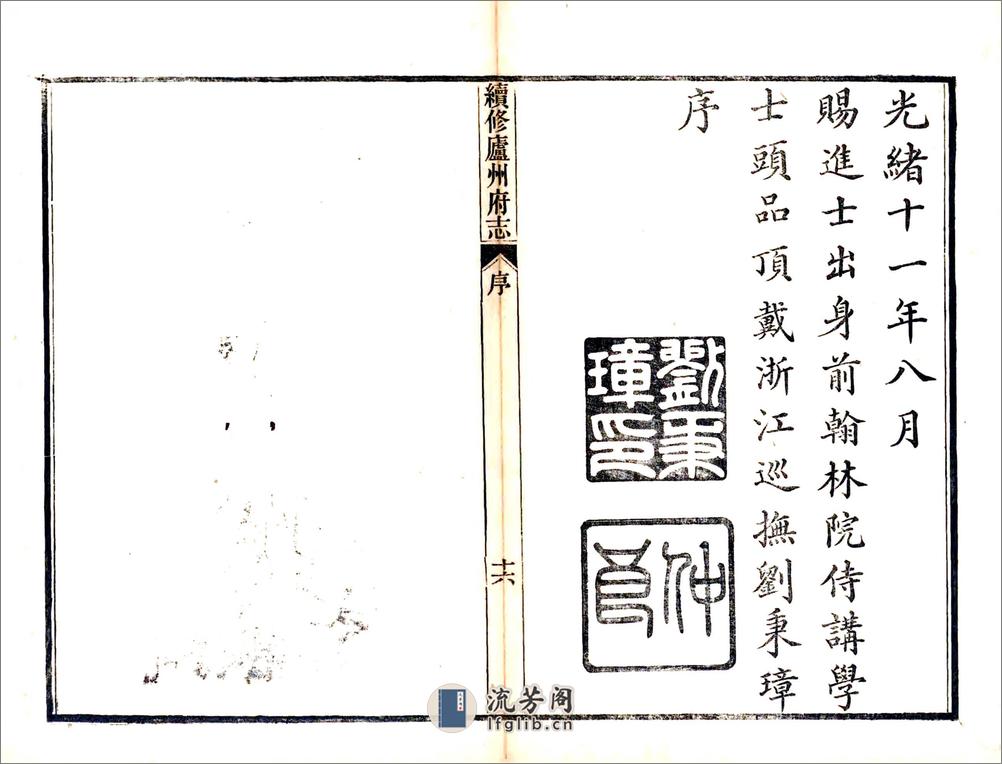 光緒十一年八月
賜進士出身前翰林院侍講學
士頭品頂戴浙江巡撫劉秉璋
序
劉秉
璋印
仲良
續修廬州府志
序
十六
流芳阁
lfglib.cn